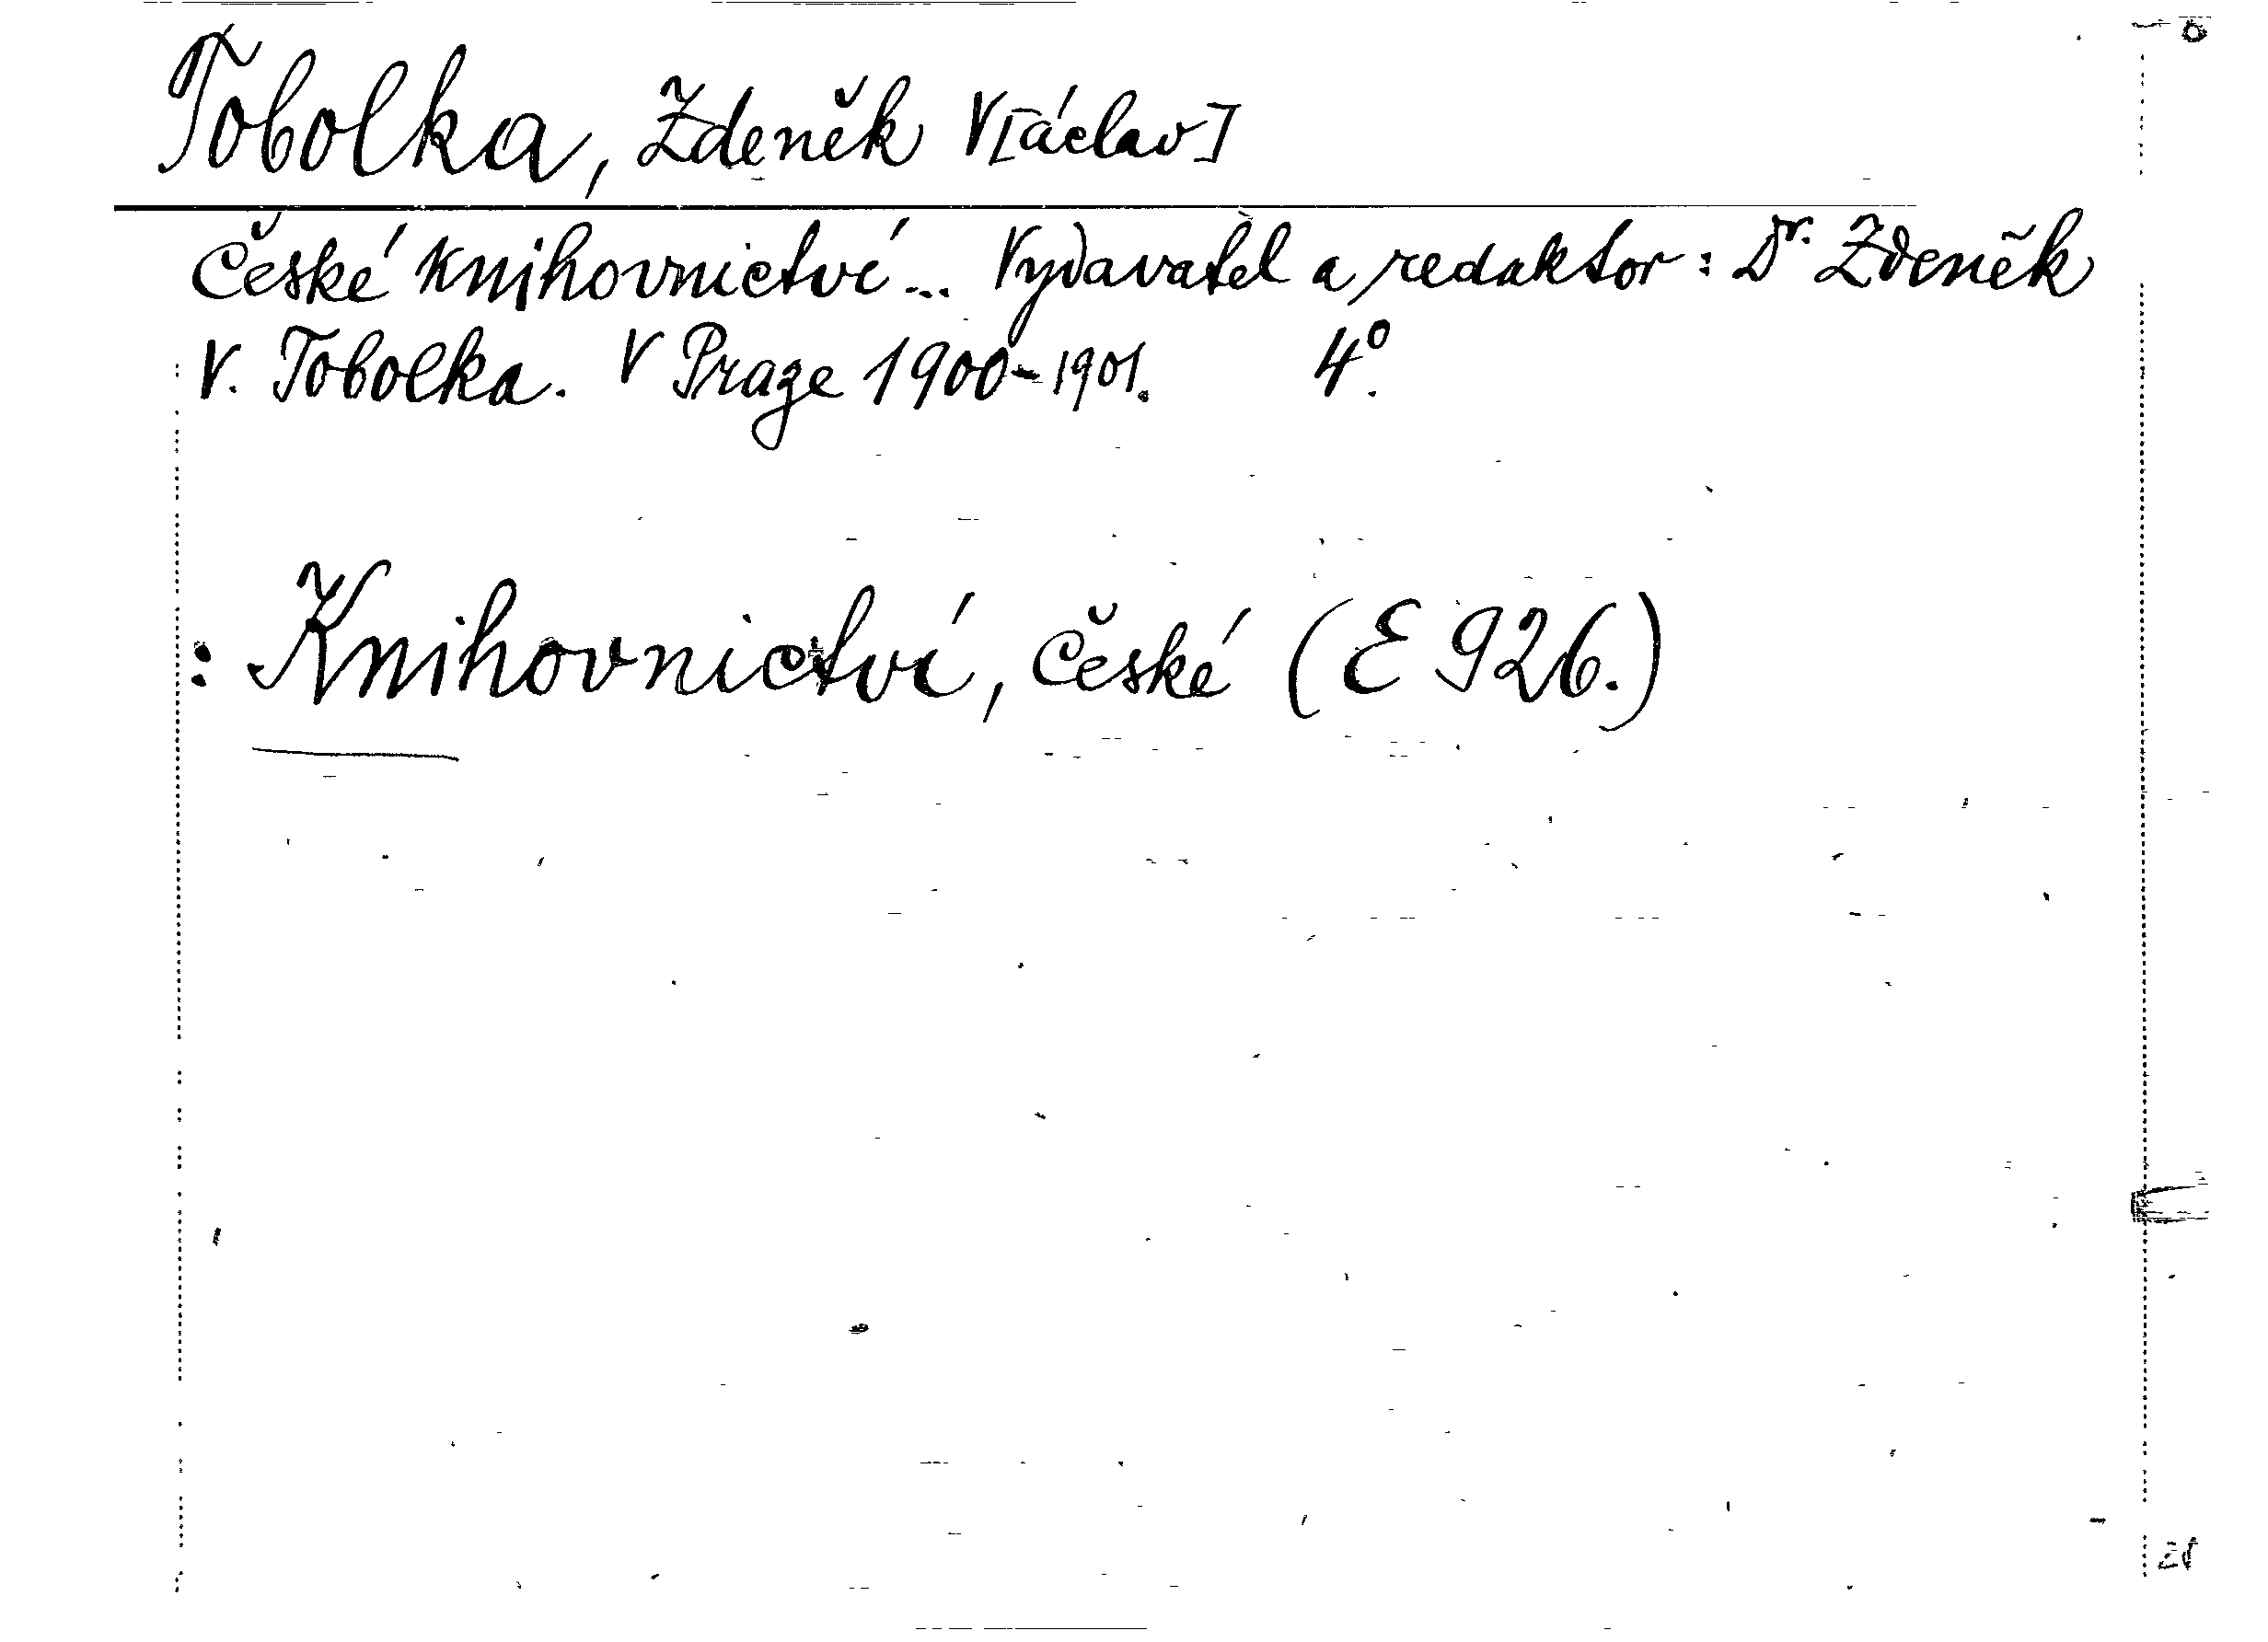 Tobolka, Zdeněk V[áclav]
České knihovnictví... Vydavatel a redaktor: Dr. Zdeněk
V. Tobolka. V Praze 1900-1901. 4º.
: Knihovnictví, České (E 926.)